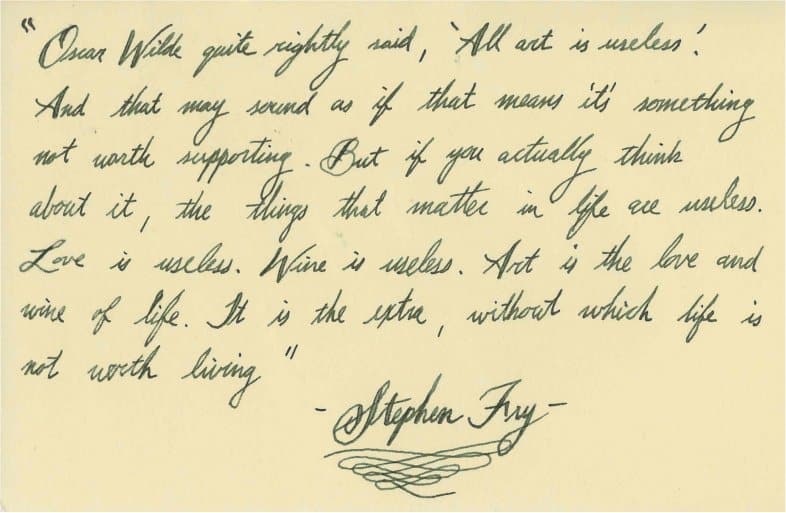 "Oscar Wilde quite rightly said, 'All art is useless'.
And that may sound as if that means it's something
not worth supporting. But if you actually think
about it, the things that matter in life are useless.
Love is useless. Wine is useless. Art is the love and
wine of life. It is the extra, without which life is
not worth living"
- Stephen Fry -